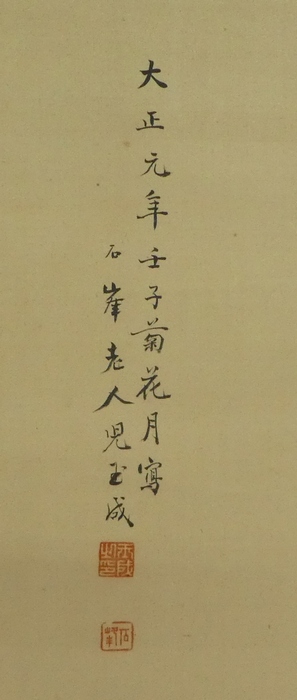 大正元年壬子菊花月寫
石峯老人児玉成
石峯